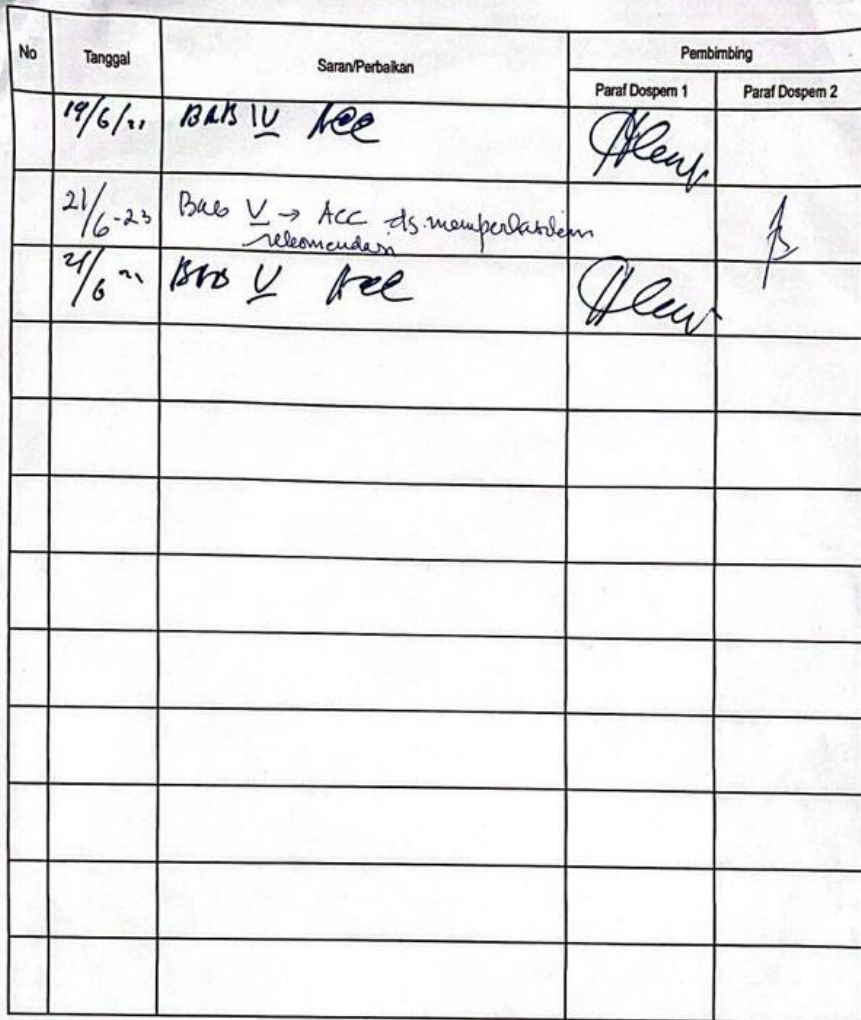 No Tanggal Saran/Perbaikan Pembimbing
Paraf Dospem 1 Paraf Dospem 2
19/6/ BAB IV Acc
21/6-23 Bab V → ACC
rekomendasi
21/6 BAB V Acc